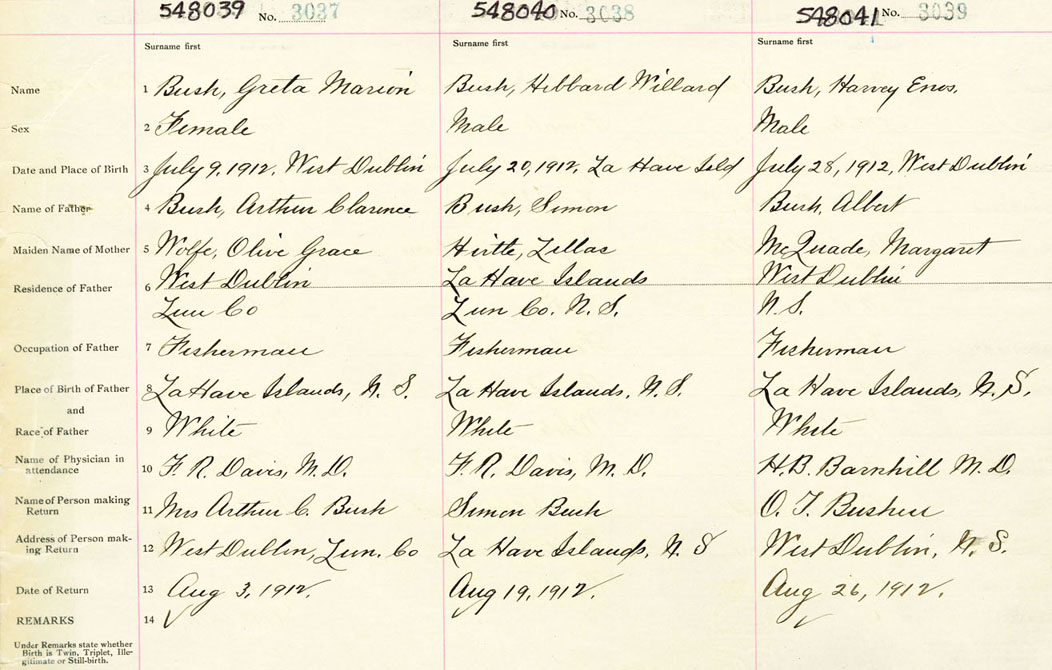 548039 No. 3037 548040 No. 3038 548041 No. 3039
Surname first Surname first Surname first
Name 1 Bush, Greta Marion Bush, Hibbard Willard Bush, Harvey Enos.
Sex 2 Female Male Male
Date and Place of Birth 3 July 9, 1912, West Dublin July 20, 1912, La Have Isld July 28, 1912, West Dublin
Name of Father 4 Bush, Arthur Clarence Bush, Simon Bush, Albert
Maiden Name of Mother 5 Wolfe, Olive Grace Hirtle, Zillas McQuade, Margaret
Residence of Father 6 West Dublin La Have Islands West Dublin
Lun Co Lun Co. N. S. N. S.
Occupation of Father 7 Fisherman Fisherman Fisherman
Place of Birth of Father 8 La Have Islands, N. S. La Have Islands, N. S. La Have Islands, N. S.
and
Race of Father 9 White White White
Name of Physician in
attendance 10 F. R. Davis, M. D. F. R. Davis, M. D. H. B. Barnhill M. D.
Name of Person making
Return 11 Mrs Arthur C. Bush Simon Bush O. T.
Address of Person mak-
ing Return 12 West Dublin, Lun. Co La Have Islands, N. S West Dublin, N. S.
Date of Return 13 Aug 3, 1912. Aug 19, 1912. Aug 26, 1912.
REMARKS 14
Under Remarks state whether
Birth is Twin, Triplet, Ille-
gitimate or Still-birth.